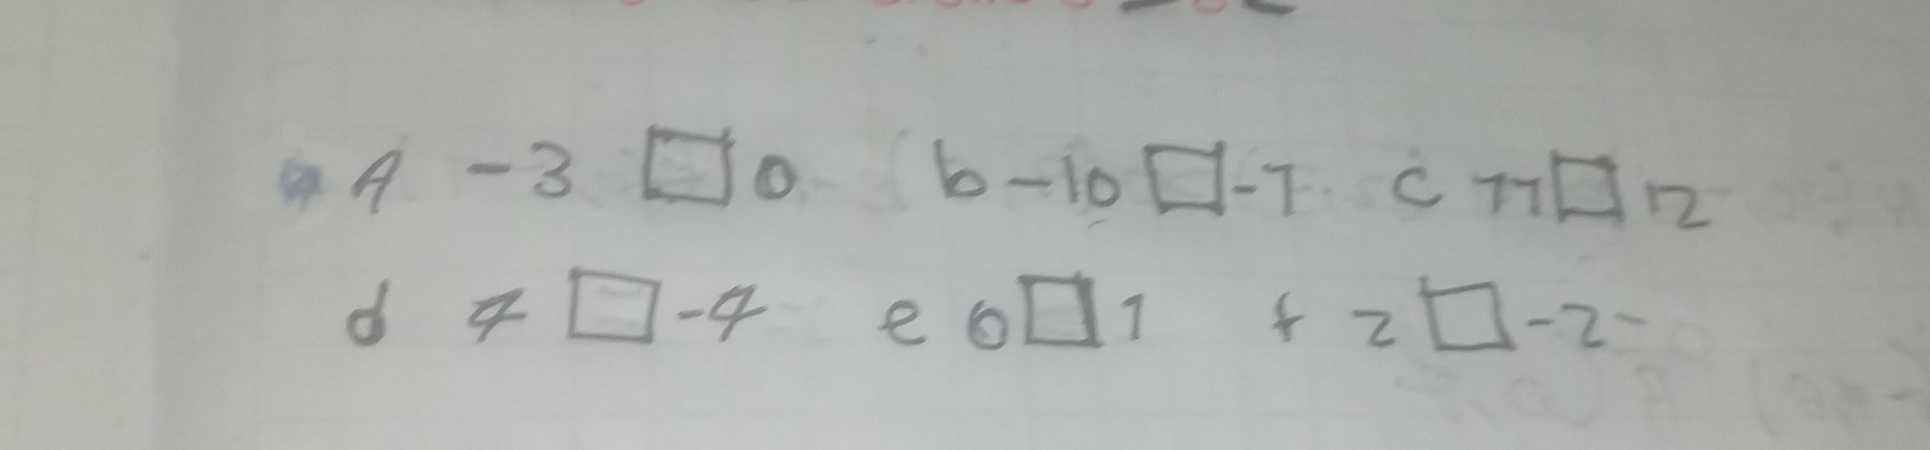 A -3 □ 0 b -10 □ -7 c 11 □ 12
d 4 □ -4 e 0 □ 1 f 2 □ -2